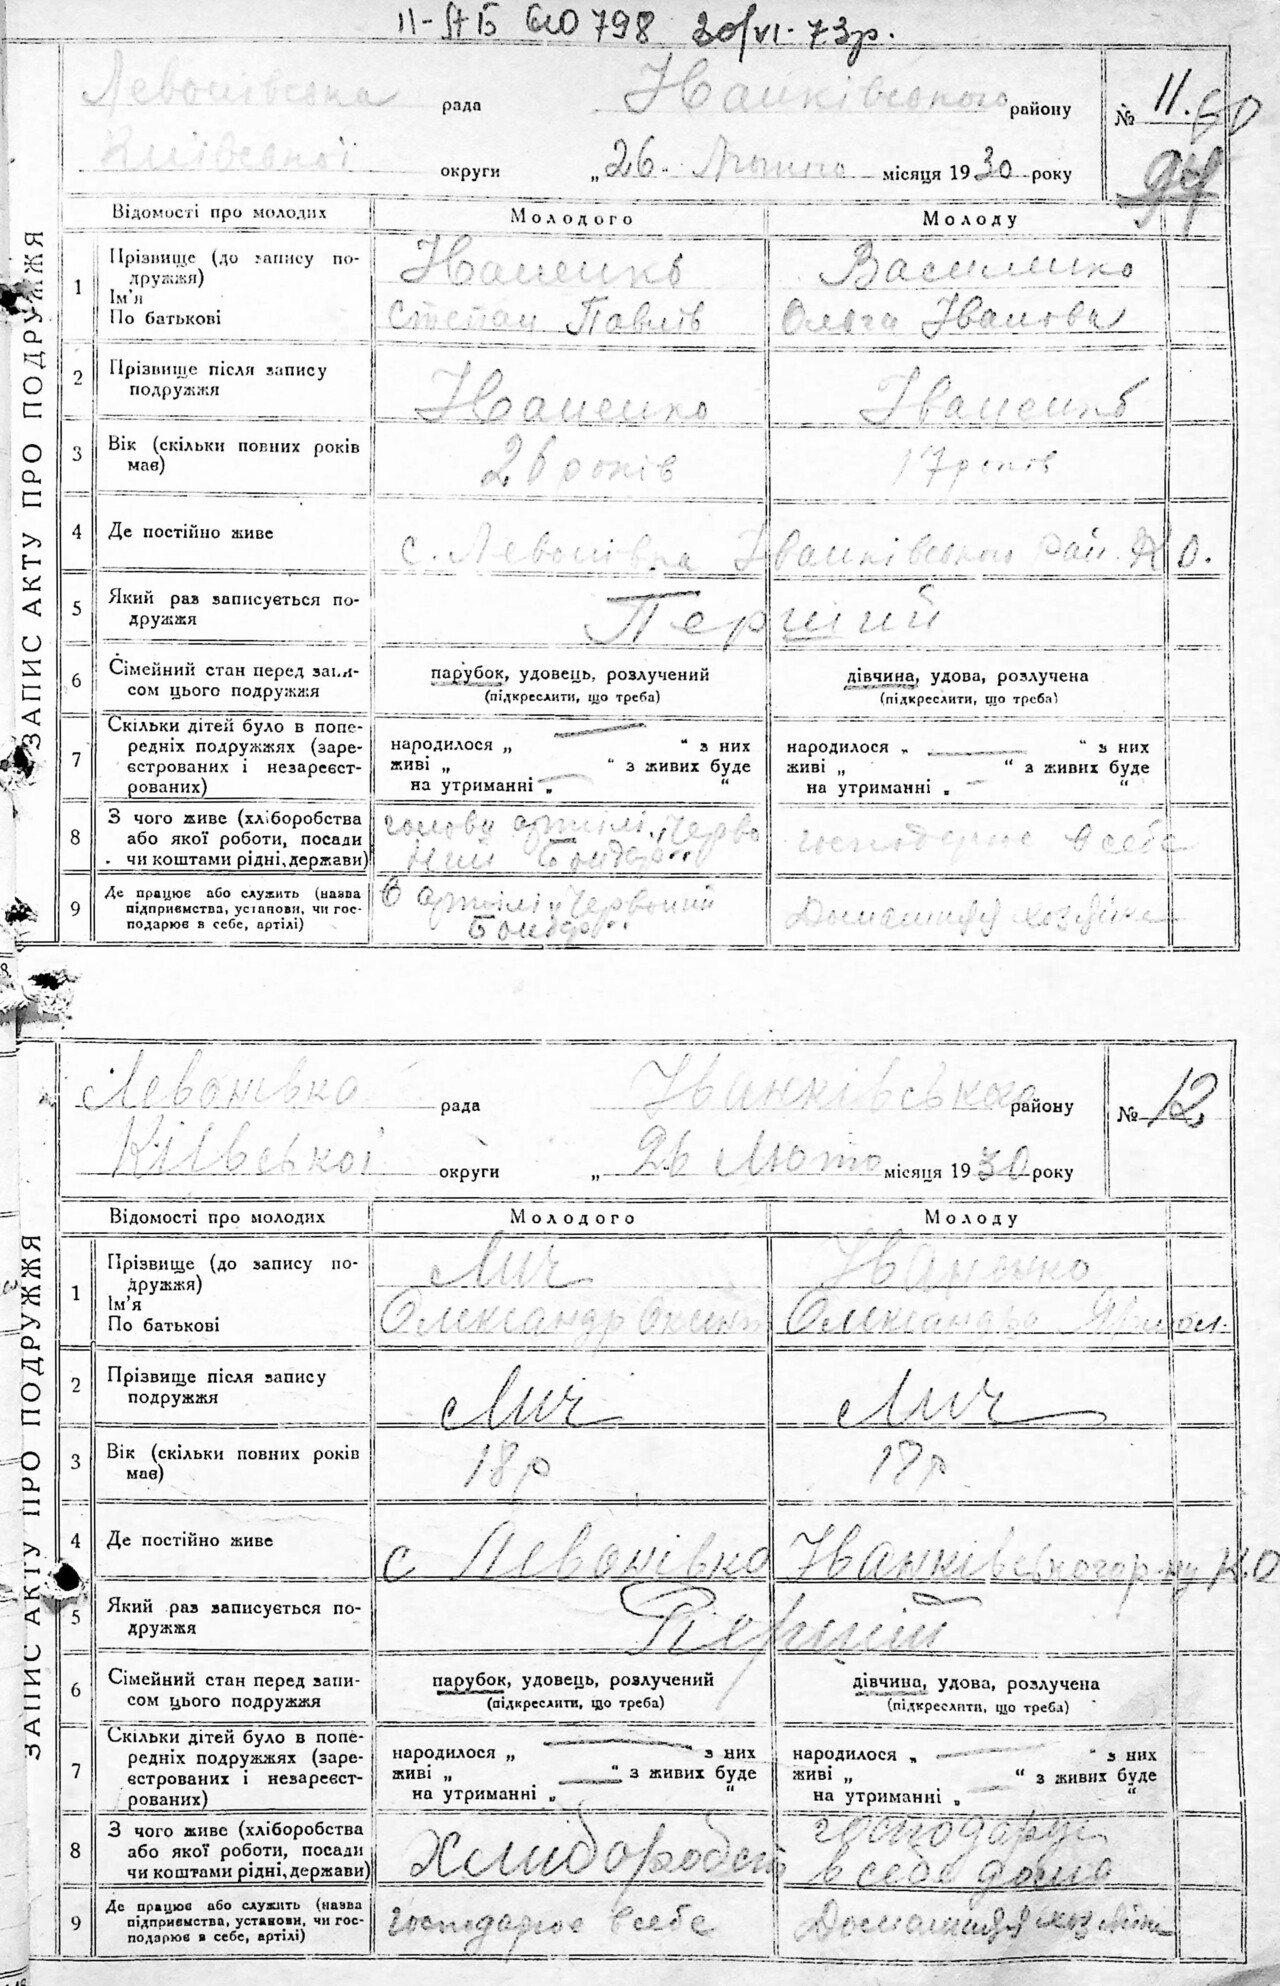 II-АБ 610798 30/VI-73р.
Левонівська рада Іванківського району № 11. 60
Київської округи „26. Лютого місяця 1930 року
ЗАПИС АКТУ ПРО ПОДРУЖЖЯ
Відомості про молодих Молодого Молоду
1 Прізвище (до запису подружжя) Іваненко Василенко
Ім'я
По батькові Степан Павлів Ольга Іванова
2 Прізвище після запису подружжя Іваненко Іваненко
3 Вік (скільки повних років має) 26 років 17 років
4 Де постійно живе с. Левонівка Іванківського рай. К.О.
5 Який раз записується подружжя Перший
6 Сімейний стан перед записом цього подружжя парубок, удовець, розлучений дівчина, удова, розлучена
(підкреслити, що треба) (підкреслити, що треба)
7 Скільки дітей було в попередніх подружжях (зареєстрованих і незареєстрованих) народилося „ — “ з них народилося „ — “ з них
живі „ “ з живих буде живі „ “ з живих буде
на утриманні „ — “ на утриманні „ — “
8 З чого живе (хліборобства або якої роботи, посади чи коштами рідні, держави) голова артілі „Червоний Бондар“ господарює в себе
9 Де працює або служить (назва підприємства, установи, чи господарює в себе, артілі) В артілі „Червоний Бондар“ Домашняя хозяйка
Левонівка рада Іванківського району № 12
Київської округи „ 26 Люто місяця 1930 року
ЗАПИС АКТУ ПРО ПОДРУЖЖЯ
Відомості про молодих Молодого Молоду
1 Прізвище (до запису подружжя) Лич Іваненко
Ім'я
По батькові Олександр Олександра
2 Прізвище після запису подружжя Лич Лич
3 Вік (скільки повних років має) 18р 18р
4 Де постійно живе с Левонівка Іванківського р-ну К.О
5 Який раз записується подружжя Перший
6 Сімейний стан перед записом цього подружжя парубок, удовець, розлучений дівчина, удова, розлучена
(підкреслити, що треба) (підкреслити, що треба)
7 Скільки дітей було в попередніх подружжях (зареєстрованих і незареєстрованих) народилося „ — “ з них народилося „ — “ з них
живі „ — “ з живих буде живі „ “ з живих буде
на утриманні „ “ на утриманні „ “
8 З чого живе (хліборобства або якої роботи, посади чи коштами рідні, держави) Хлиборобст господарує в себе дома
9 Де працює або служить (назва підприємства, установи, чи господарює в себе, артілі) господарює в себе Домашняя хозяйка